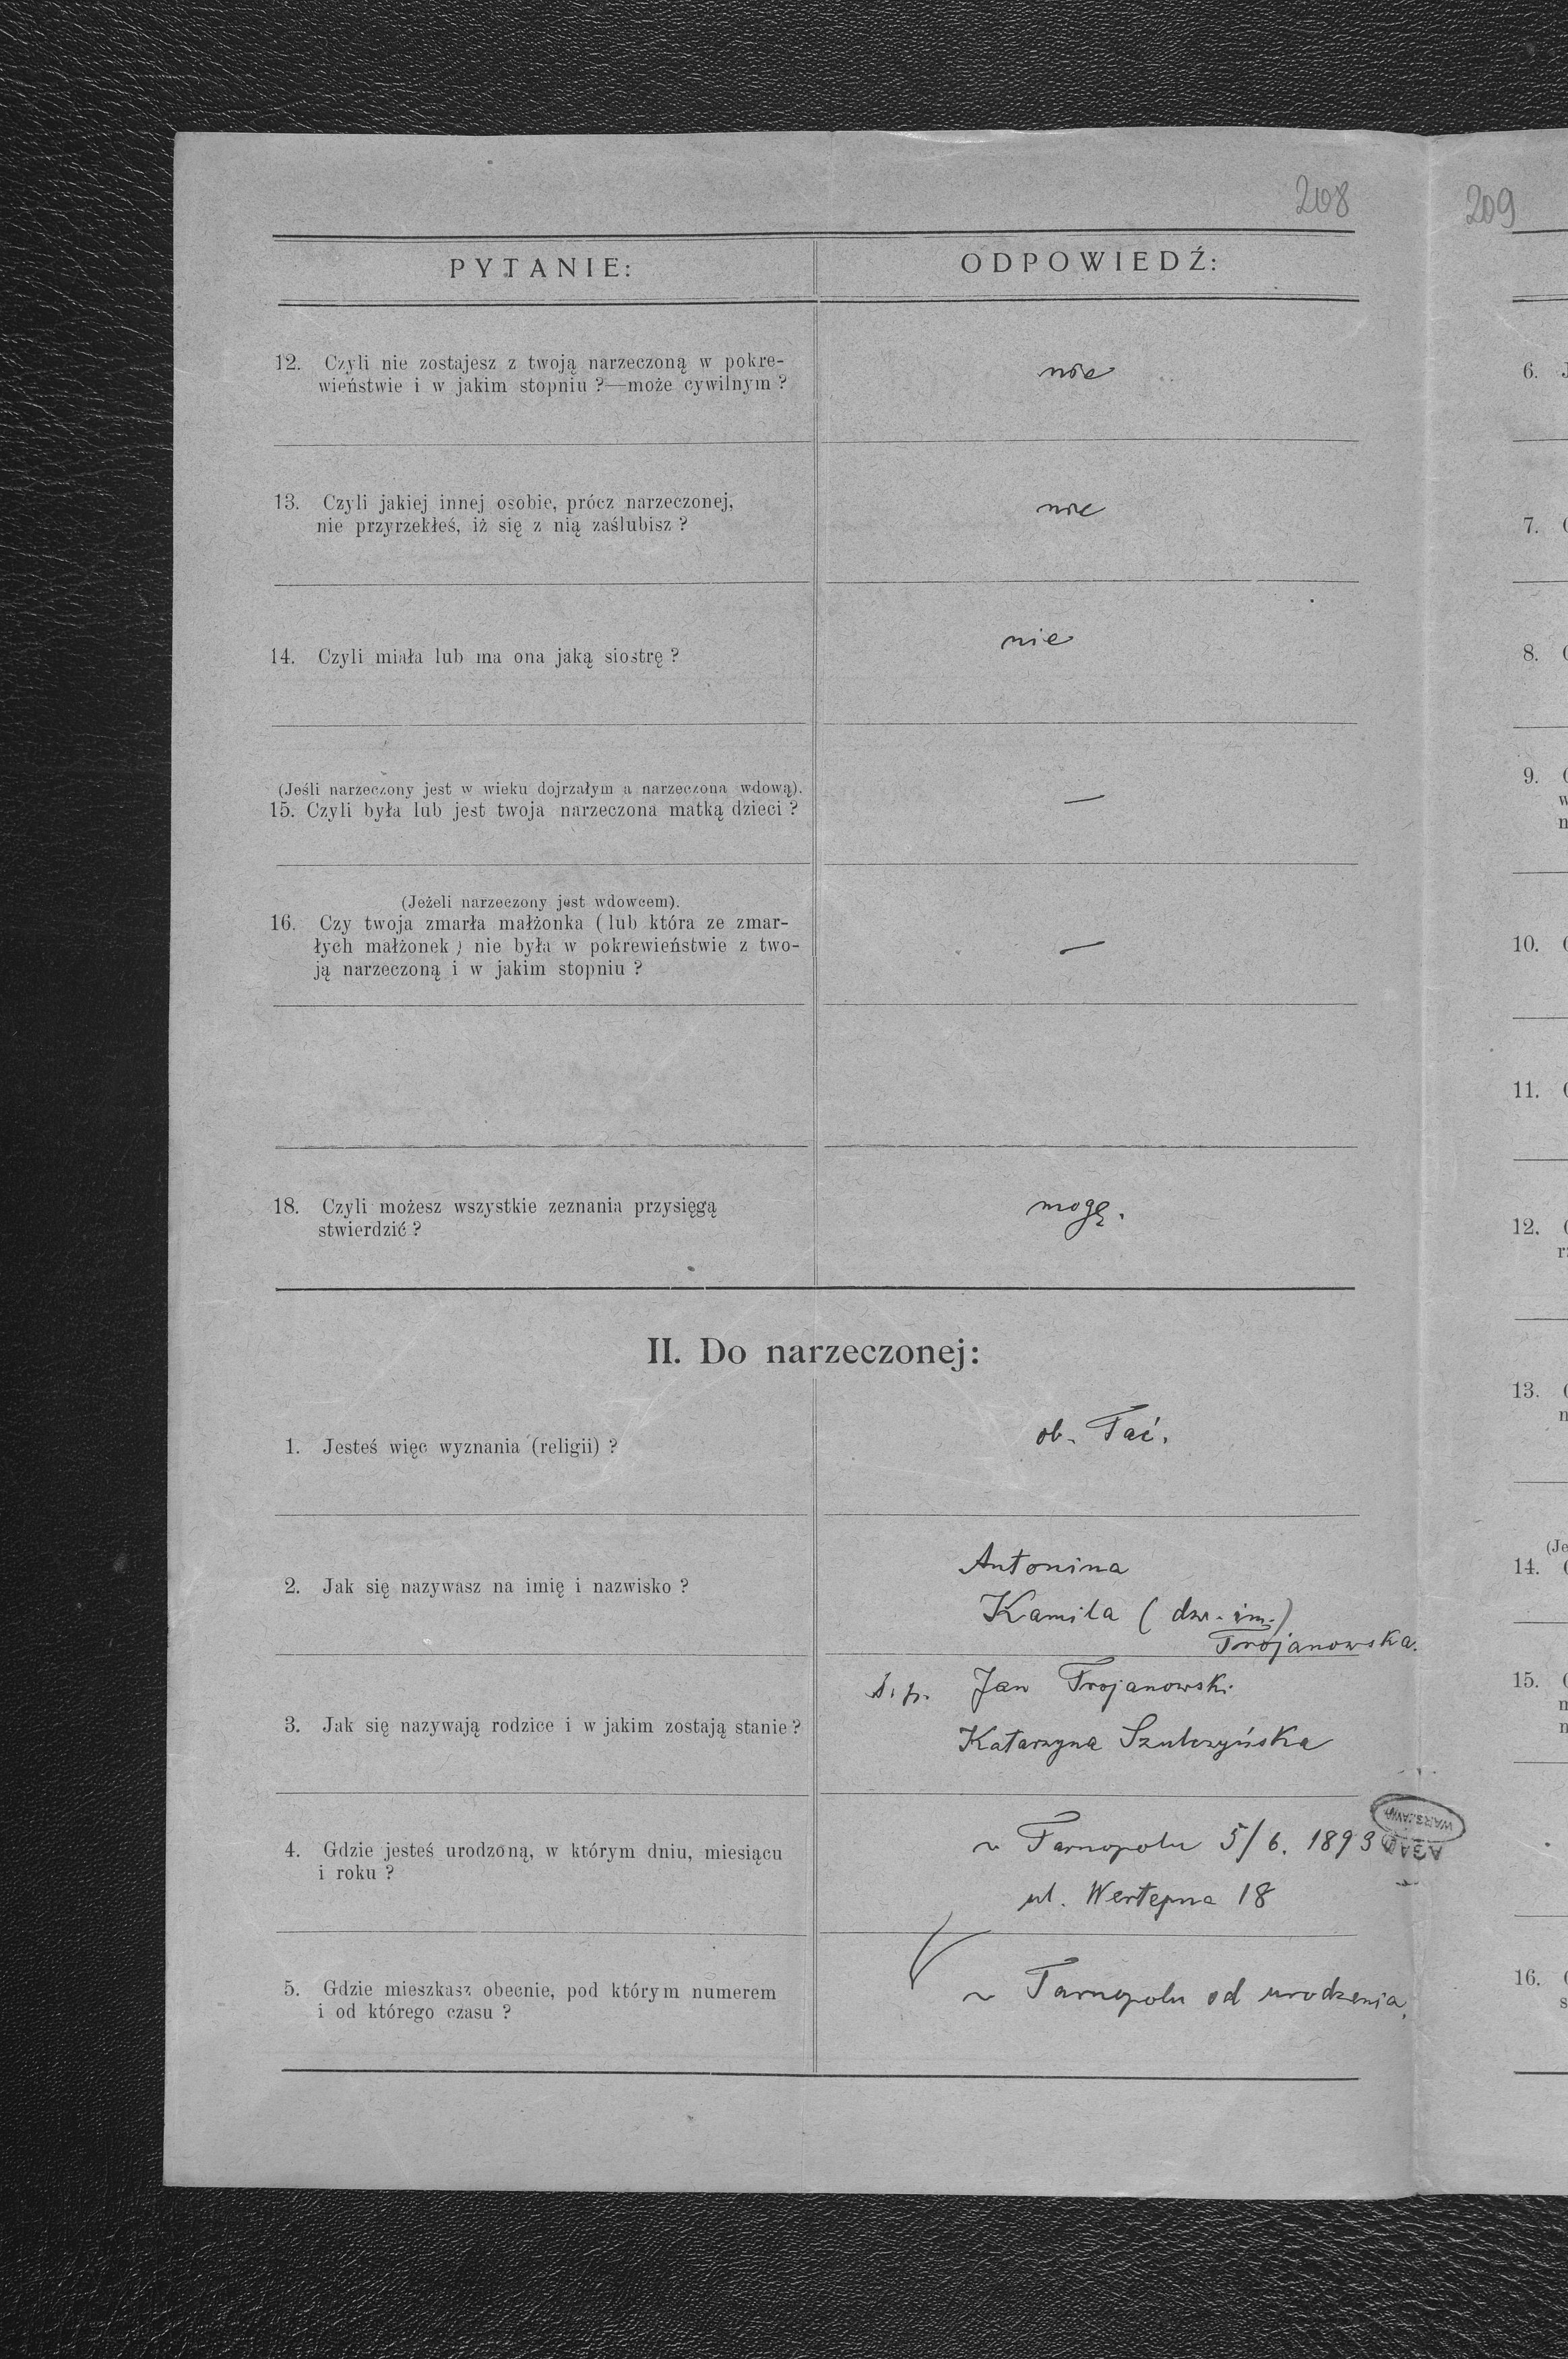 208
209
PYTANIE:
ODPOWIEDŹ:
12. Czyli nie zostajesz z twoją narzeczoną w pokre-
wieństwie i w jakim stopniu ?—może cywilnym ?
nie
13. Czyli jakiej innej osobie, prócz narzeczonej,
nie przyrzekłeś, iż się z nią zaślubisz ?
nie
14. Czyli miała lub ma ona jaką siostrę ?
nie
(Jeśli narzeczony jest w wieku dojrzałym a narzeczona wdową).
15. Czyli była lub jest twoja narzeczona matką dzieci ?
—
(Jeżeli narzeczony jest wdowcem).
16. Czy twoja zmarła małżonka ( lub która ze zmar-
łych małżonek ) nie była w pokrewieństwie z two-
ją narzeczoną i w jakim stopniu ?
—
18. Czyli możesz wszystkie zeznania przysięgą
stwierdzić ?
mogę.
II. Do narzeczonej:
1. Jesteś więc wyznania (religii) ?
ob. łać.
2. Jak się nazywasz na imię i nazwisko ?
Antonina
Kamila ( dw. im.)
Trojanowska.
3. Jak się nazywają rodzice i w jakim zostają stanie ?
ś. p. Jan Trojanowski
Katarzyna Szulczyńska
4. Gdzie jesteś urodzoną, w którym dniu, miesiącu
i roku ?
w Tarnopolu 5/6. 1893
ul. Wertepna 18
WARSZAWA
AGAD
5. Gdzie mieszkasz obecnie, pod którym numerem
i od którego czasu ?
w Tarnopolu od urodzenia.
6.
7.
8.
9.
10.
11.
12.
13.
(Je
14.
15.
16.